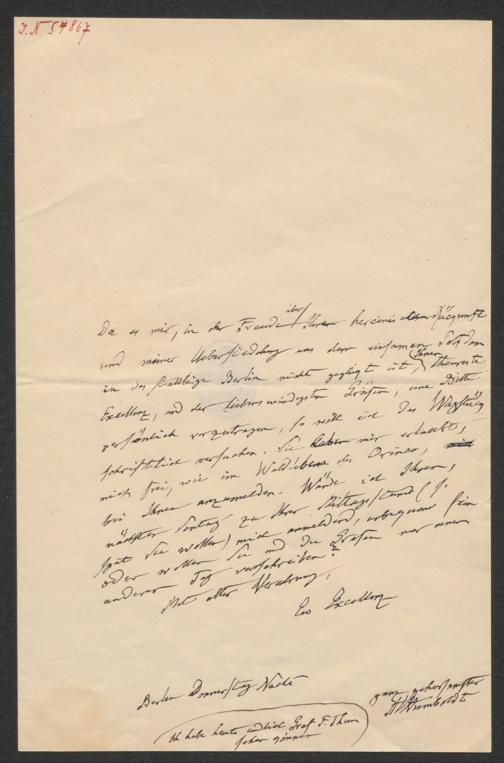 I. N. 54867
Da es mir, in der Freude über Ihre
und meiner Uebersiedelung aus dem einsamen Potsdam
in das staubige Berlin nicht geglückt ist, Ihnen, theuerste
Excellenz, und der liebenswürdigsten Gräfin, eine Bitte
persönlich vorzutragen, so will ich das
schriftlich versuchen. Sie haben mir erlaubt,
mich frei, wie im Waldleben des
bei Ihnen anzumelden. Würde ich Ihnen,
nächsten Sontag zu Ihrer Mittagsstund (so
spät Sie wollen) mich anmeldend, unbequem sein
oder wollen Sie und die Gräfin mir einen
anderen Tag vorschreiben?
Mit alter Verehrung,
Ew Excellenz
Berlin Donnerstag Nacht
ganz gehorsamster
AvHumboldt
Ich habe heute endlich Graf F. Thun
sehen können